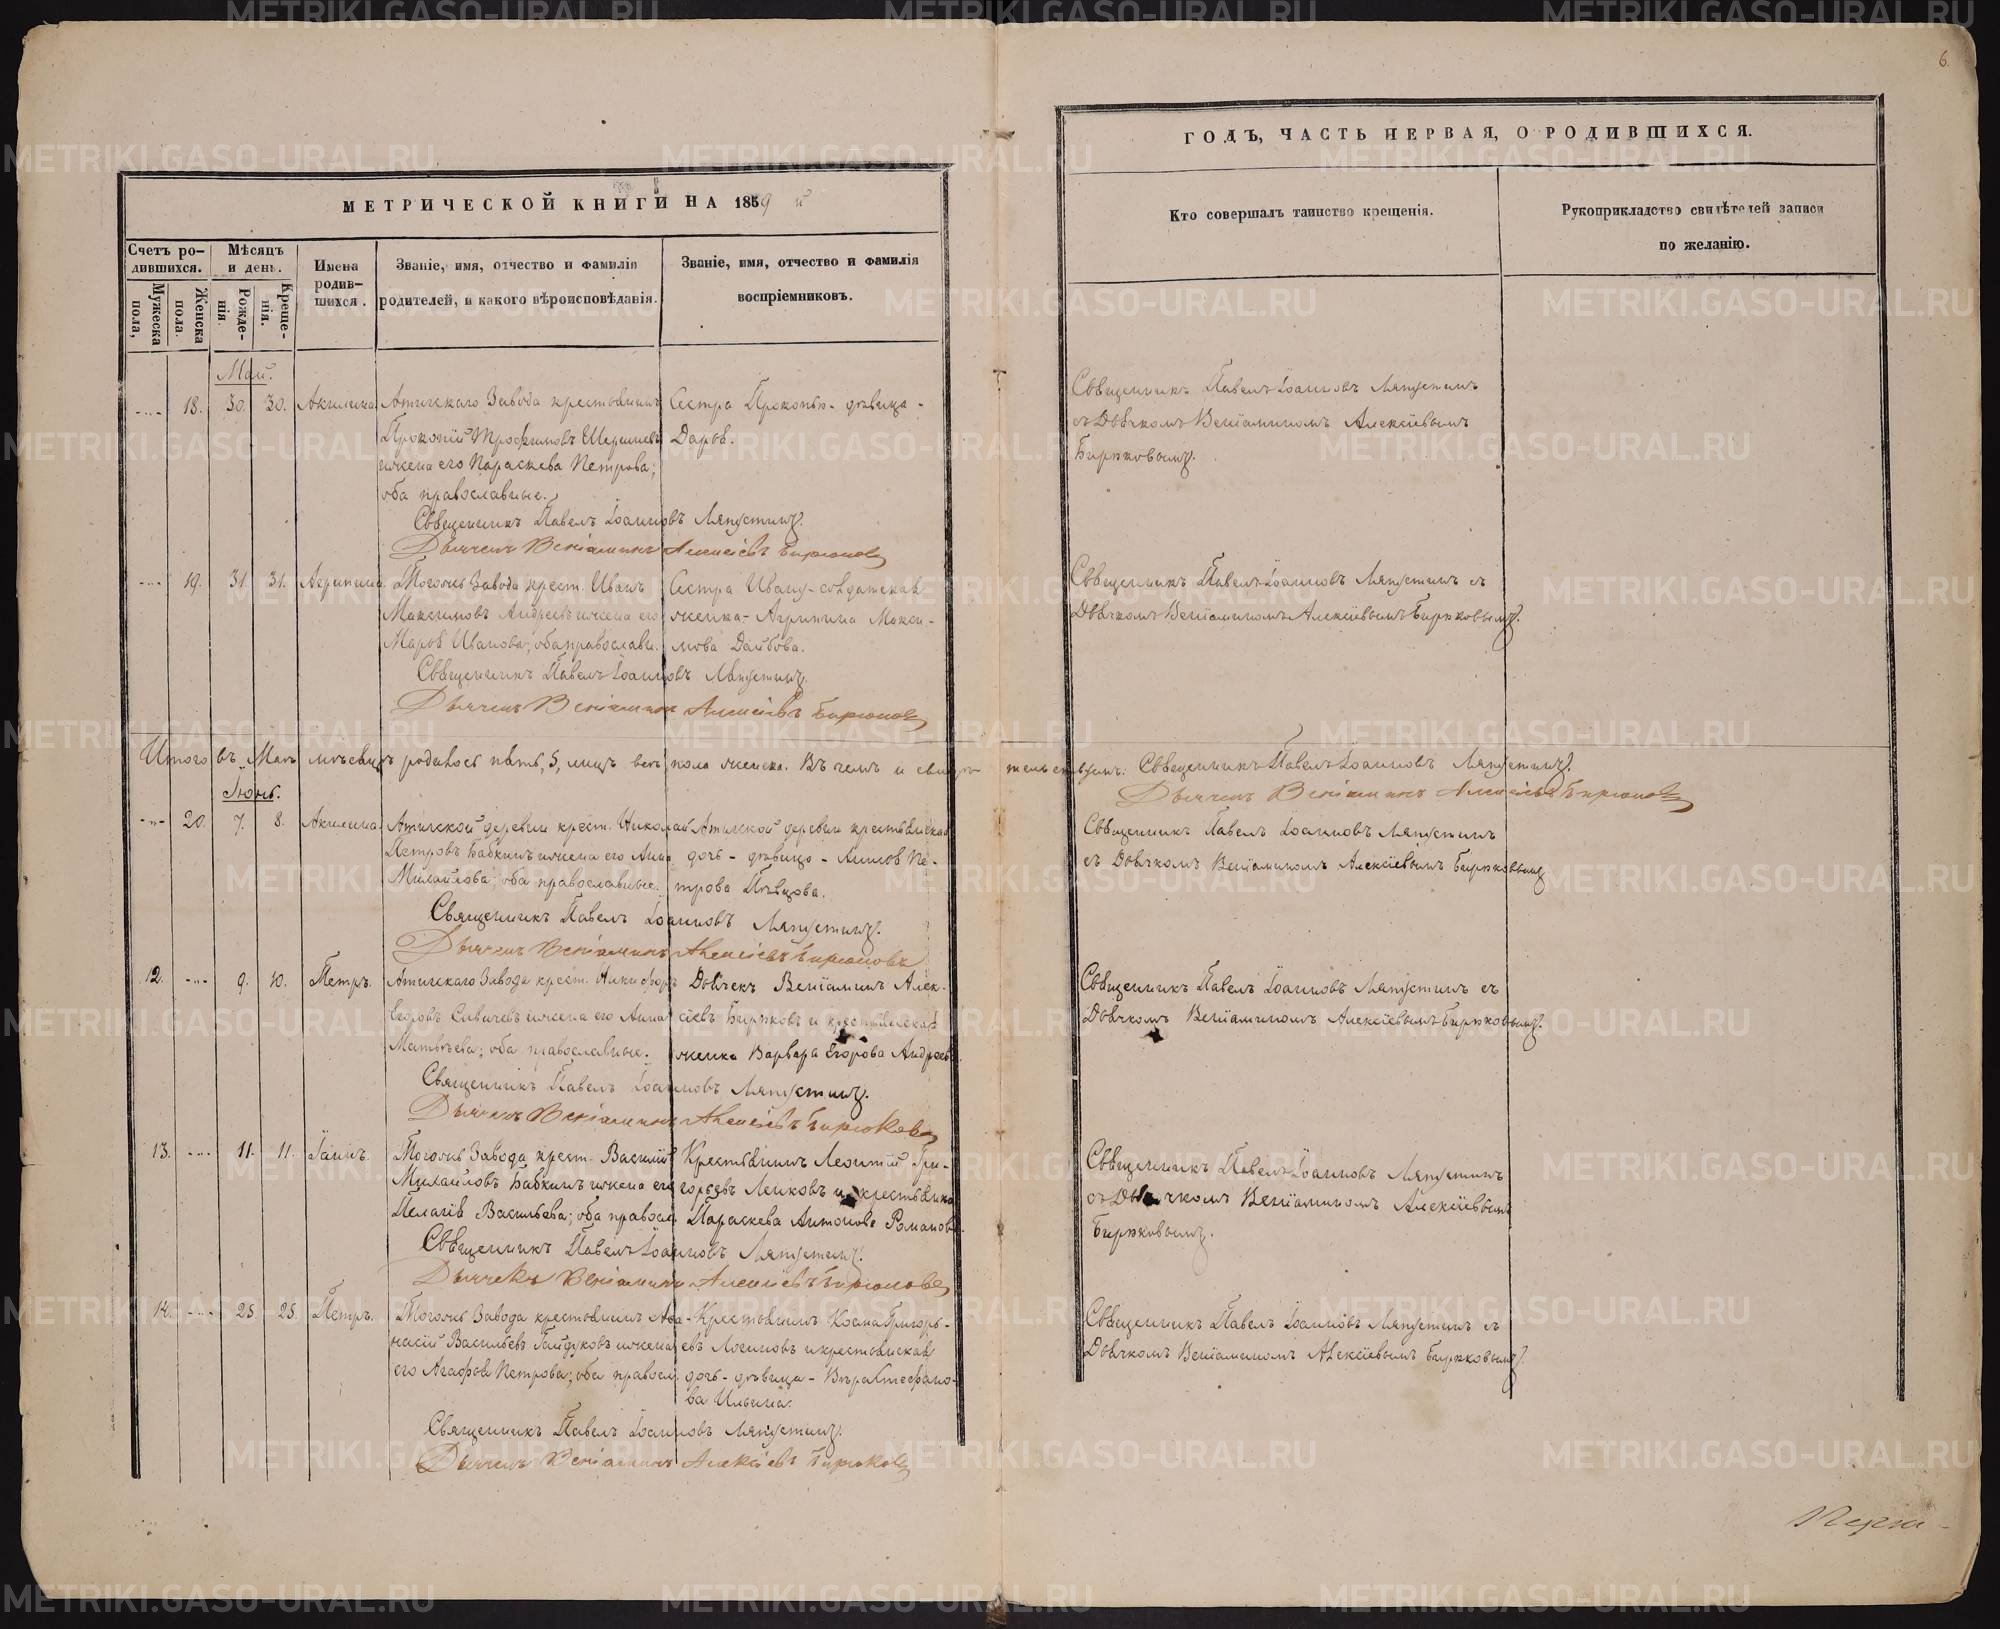 6.
МЕТРИЧЕСКОЙ КНИГИ НА 1859 й
ГОДЪ, ЧАСТЬ ПЕРВАЯ, О РОДИВШИХСЯ.
Счетъ ро-
дившихся.
Мужеска
пола,
Женска
пола.
Мѣсяцъ
и день.
Рожде-
нія.
Креще-
нія.
Имена
родив-
шихся.
Званіе, имя, отчество и фамилія
родителей, и какого вѣроисповѣданія.
Званіе, имя, отчество и фамилія
воспріемниковъ.
Кто совершалъ таинство крещенія.
Рукоприкладство свидѣтелей записи
по желанію.
Май.
18. 30. 30. Акилина Атигскаго Завода крестьянинъ
Прокопій Трофимовъ
и жена его Параскева Петрова;
оба православные.
Сестра Прокопью - дѣвица -
Дарья.
Священникъ Павелъ Іоанновъ Ляпустинъ
съ Дьячкомъ Веніаминомъ Алексіевымъ
Бирюковымъ.
Священникъ Павелъ Іоанновъ Ляпустинъ.
Дьячекъ Веніаминъ Алексіевъ Бирюковъ
19. 31. 31. Агрипина. Тогоже Завода крест. Иванъ
Максимовъ Андреевъ и жена его
Марья Иванова; оба православн.
Сестра Ивану - солдатская
женка - Агрипина Макси-
мова
Священникъ Павелъ Іоанновъ Ляпустинъ съ
Дьячкомъ Веніаминомъ Алексіевымъ Бирюковымъ.
Священникъ Павелъ Іоанновъ Ляпустинъ.
Дьячекъ Веніаминъ Алексіевъ Бирюковъ
Итого въ Маѣ мѣсяцѣ родилось пять, 5, лицъ всѣ пола женска. Въ чемъ и свидѣтельствуемъ: Священникъ Павелъ Іоанновъ Ляпустинъ.
Дьячекъ Веніаминъ Алексіевъ Бирюковъ
Іюнь.
20. 7. 8. Акилина Атигской деревни крест. Николай
Петровъ Бабкинъ и жена его Анна
Михайлова; оба православные.
Атигской деревни крестьянская
дочь - дѣвица - Анисья Пе-
трова Пѣвцова.
Священникъ Павелъ Іоанновъ Ляпустинъ
съ Дьячкомъ Веніаминомъ Алексіевымъ Бирюковымъ
Священникъ Павелъ Іоанновъ Ляпустинъ.
Дьячекъ Веніаминъ Алексіевъ Бирюковъ
12. 9. 10. Петръ. Атигскаго Завода крест. Никифоръ
и жена его Анна
Матвѣева; оба православные.
Дьячекъ Веніаминъ Алек-
сіевъ Бирюковъ и крестьянская
женка Варвара Егорова Андреев.
Священникъ Павелъ Іоанновъ Ляпустинъ съ
Дьячкомъ Веніаминомъ Алексіевымъ Бирюковымъ.
Священникъ Павелъ Іоанновъ Ляпустинъ.
Дьячекъ Веніаминъ Алексіевъ Бирюковъ
13. 11. 11. Іаннъ. Тогоже Завода крест. Василій
Михайловъ Бабкинъ и жена его
Пелагія Васильева; оба правосл.
Крестьянинъ Леонтій Гри-
горьевъ и крестьянка
Параскева Антонова Романова.
Священникъ Павелъ Іоанновъ Ляпустинъ
съ Дьячкомъ Веніаминомъ Алексіевымъ
Бирюковымъ.
Священникъ Павелъ Іоанновъ Ляпустинъ.
Дьячекъ Веніаминъ Алексіевъ Бирюковъ
14. 25. 25. Петръ. Тогоже Завода крестьянинъ Афа-
насій Васильевъ Гайдуковъ и жена
его Агафья Петрова; оба правосл.
Крестьянинъ Козма Григорь-
евъ Логиновъ и крестьянская
дочь - дѣвица - Вѣра Стефано-
ва Ильина.
Священникъ Павелъ Іоанновъ Ляпустинъ съ
Дьячкомъ Веніаминомъ Алексіевымъ Бирюковымъ.
Священникъ Павелъ Іоанновъ Ляпустинъ.
Дьячекъ Веніаминъ Алексіевъ Бирюковъ
METRIKI.GASO-URAL.RU